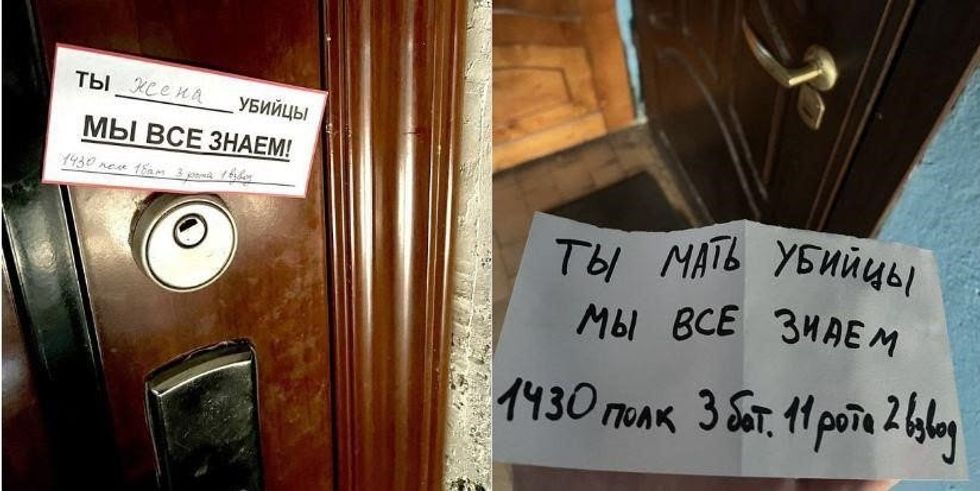 ТЫ жена УБИЙЦЫ
МЫ ВСЕ ЗНАЕМ!
1430 полк 1бат 3 рота 1взвод
ТЫ МАТЬ УБИЙЦЫ
МЫ ВСЕ ЗНАЕМ
1430 полк 3 бат. 11 рота 2 взвод